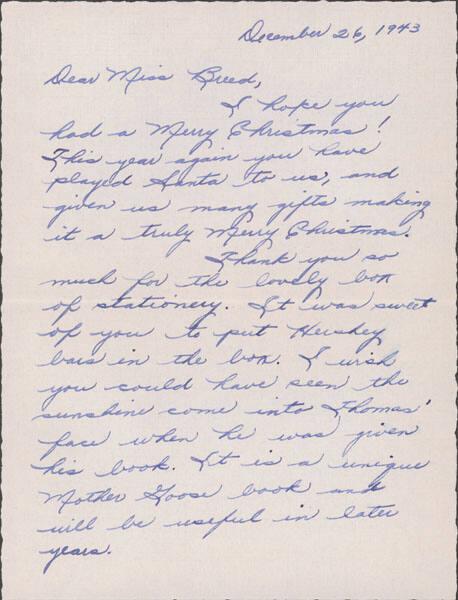 December 26, 1943
Dear Miss Breed,
I hope you
had a Merry Christmas!
This year again you have
played Santa to us, and
given us many gifts making
it a truly Merry Christmas.
Thank you so
much for the lovely box
of stationery. It was sweet
of you to put Hershey
bars in the box. I wish
you could have seen the
sunshine come into Thomas'
face when he was given
his book. It is a unique
Mother Goose book and
will be useful in later
years.